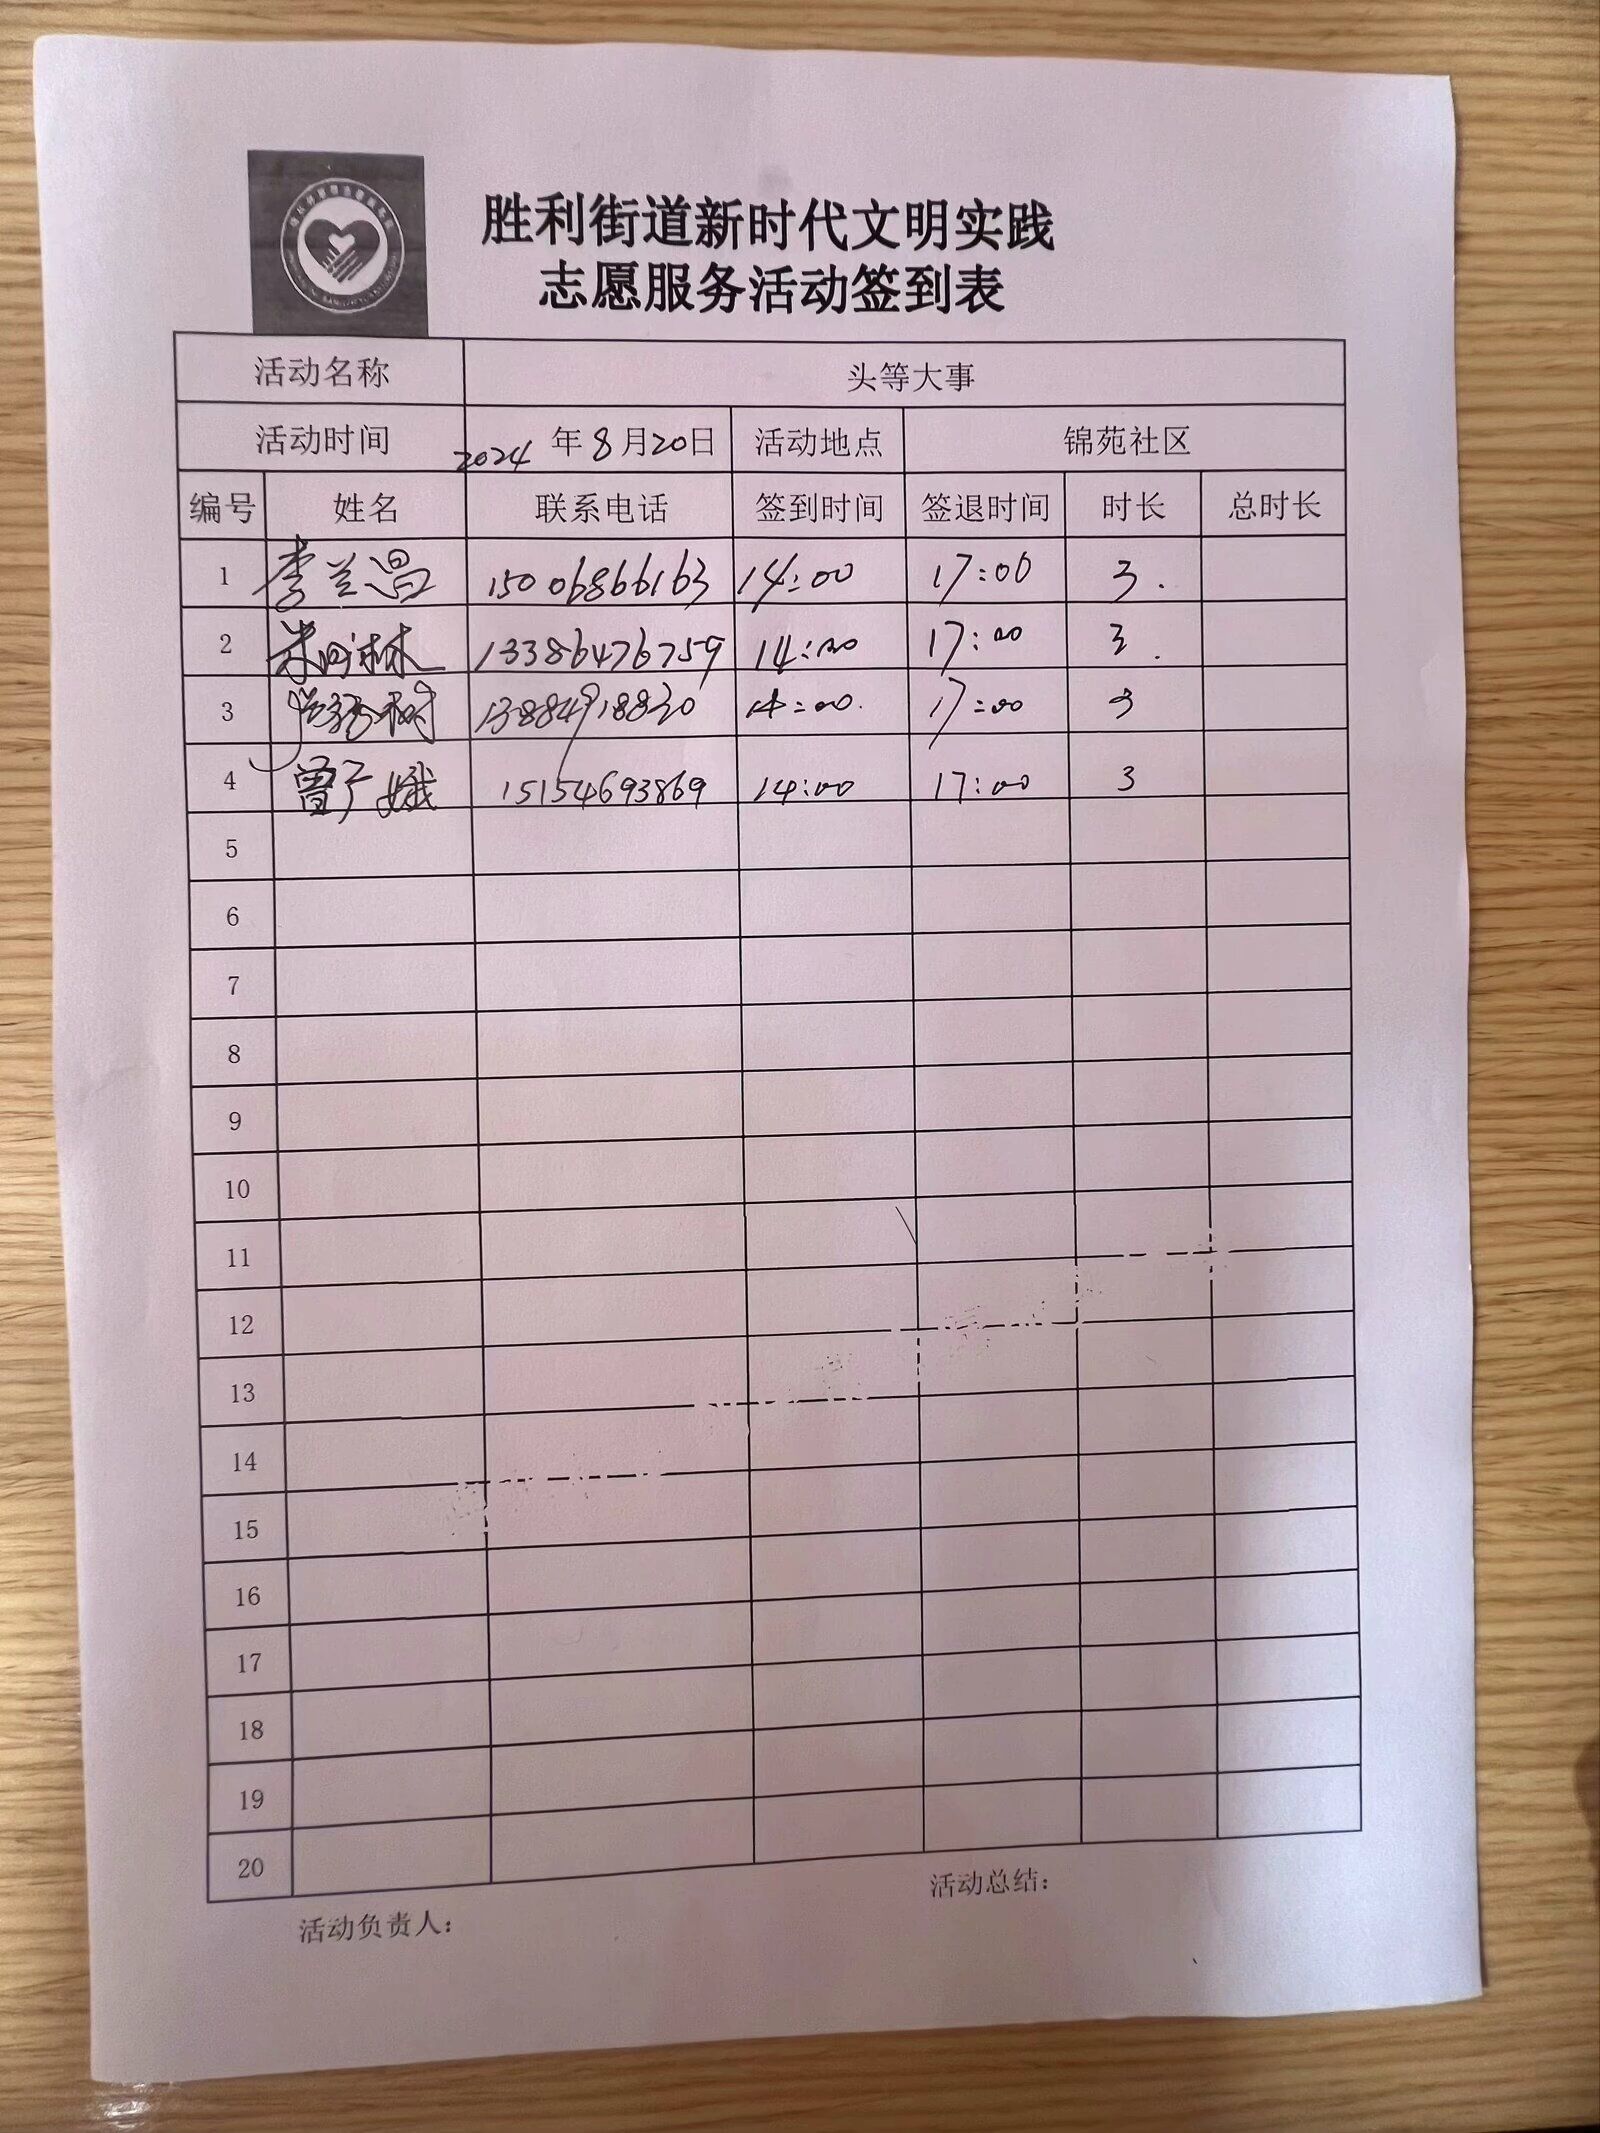 胜利街道新时代文明实践
志愿服务活动签到表
活动名称 头等大事
活动时间 2024年8月20日 活动地点 锦苑社区
编号 姓名 联系电话 签到时间 签退时间 时长 总时长
1 李兰昌 15006866163 14:00 17:00 3.
2 林 13386476759 14:00 17:00 3.
3 树 13884918830 14:00. 17:00 3
4 曾广娥 15154693869 14:00 17:00 3
5
6
7
8
9
10
11
12
13
14
15
16
17
18
19
20
活动负责人： 活动总结：